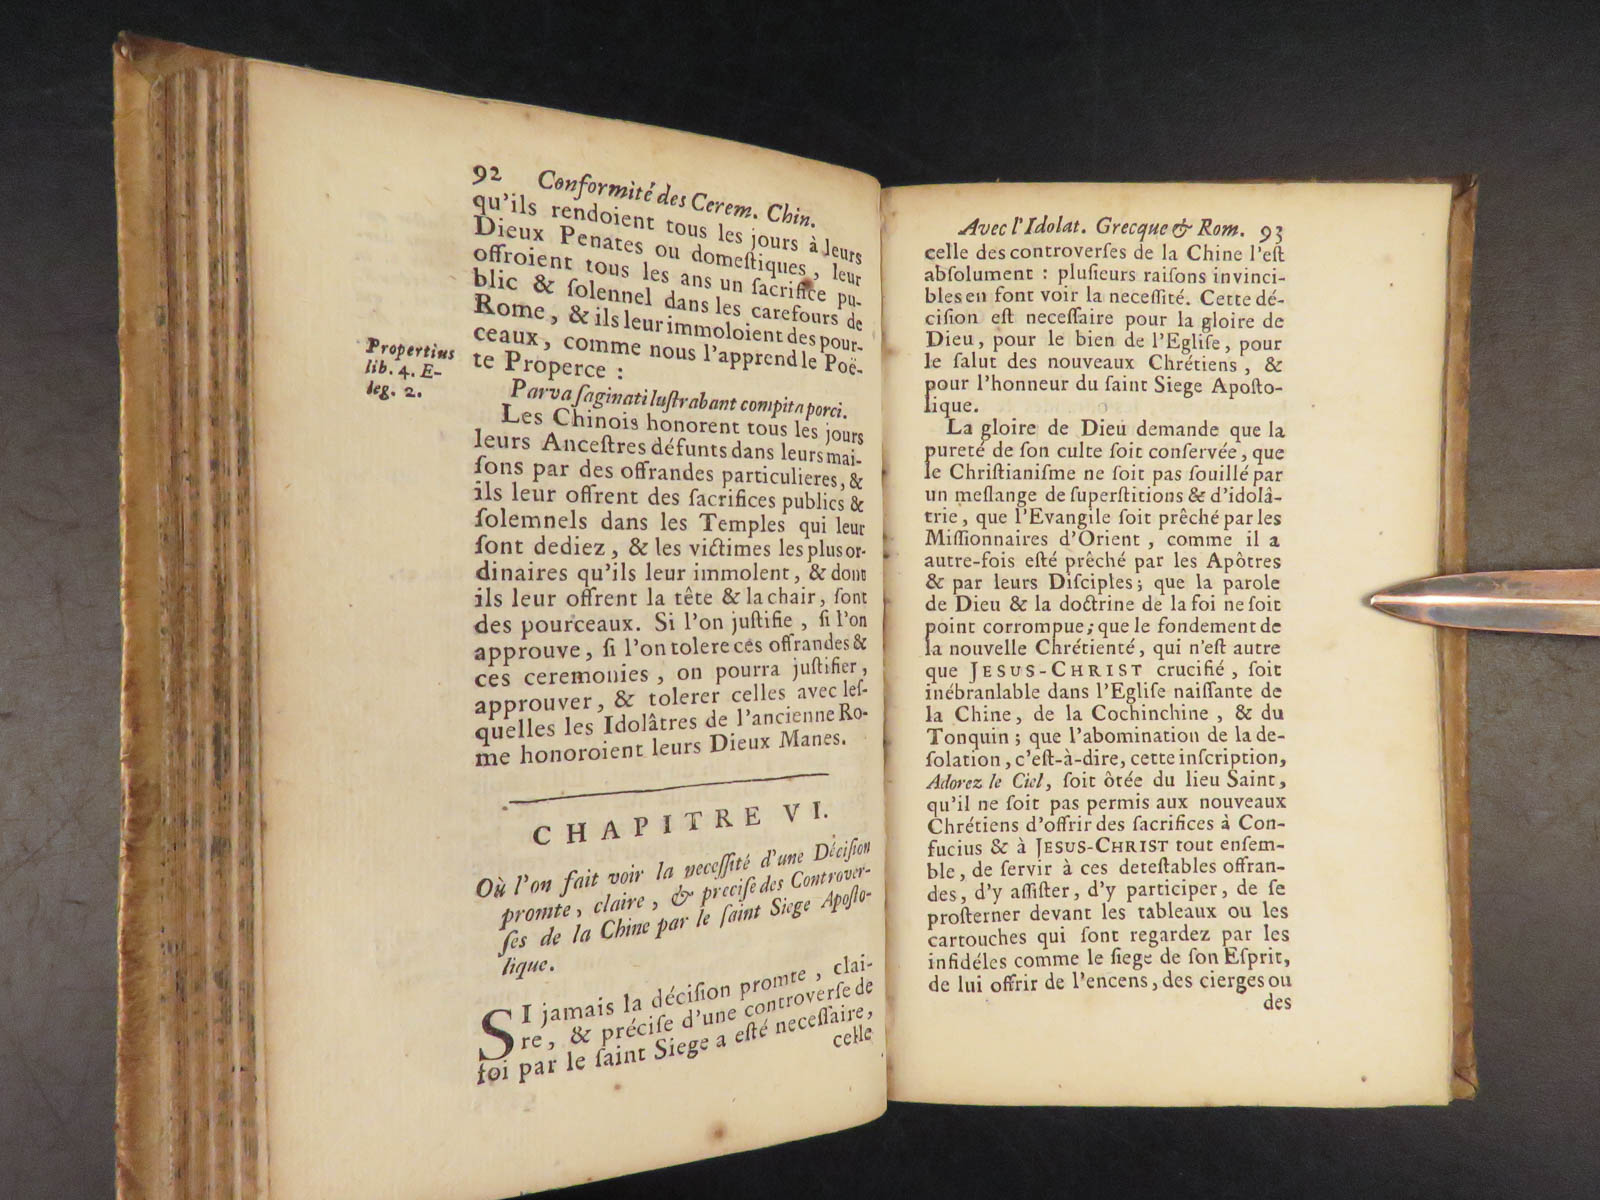 92 Conformité des Cerem. Chin.
qu'ils rendoient tous les jours à leurs
Dieux Penates ou domeſtiques, leur
offroient tous les ans un ſacrifice pu-
blic & ſolennel dans les carefours de
Rome, & ils leur immoloient des pour-
ceaux, comme nous l'apprend le Poë-
te Properce :
Propertius
lib. 4. E-
leg. 2.
Parva ſaginati luſtrabant compita porci.
Les Chinois honorent tous les jours
leurs Anceſtres défunts dans leurs mai-
ſons par des offrandes particulieres, &
ils leur offrent des ſacrifices publics &
ſolemnels dans les Temples qui leur
ſont dediez, & les victimes les plus or-
dinaires qu'ils leur immolent, & dont
ils leur offrent la tête & la chair, ſont
des pourceaux. Si l'on juſtifie, ſi l'on
approuve, ſi l'on tolere ces offrandes &
ces ceremonies, on pourra juſtifier,
approuver, & tolerer celles avec leſ-
quelles les Idolâtres de l'ancienne Ro-
me honoroient leurs Dieux Manes.
CHAPITRE VI.
Où l'on fait voir la neceſſité d'une Déciſion
promte, claire, & preciſe des Controver-
ſes de la Chine par le ſaint Siege Apoſto-
lique.
SI jamais la déciſion promte, clai-
re, & préciſe d'une controverſe de
foi par le ſaint Siege a eſté neceſſaire,
celle
Avec l'Idolat. Grecque & Rom. 93
celle des controverſes de la Chine l'eſt
abſolument : pluſieurs raiſons invinci-
bles en font voir la neceſſité. Cette dé-
ciſion eſt neceſſaire pour la gloire de
Dieu, pour le bien de l'Egliſe, pour
le ſalut des nouveaux Chrétiens, &
pour l'honneur du ſaint Siege Apoſto-
lique.
La gloire de Dieu demande que la
pureté de ſon culte ſoit conſervée, que
le Chriſtianiſme ne ſoit pas ſouillé par
un meſlange de ſuperſtitions & d'idolâ-
trie, que l'Evangile ſoit prêché par les
Miſſionnaires d'Orient, comme il a
autre-fois eſté prêché par les Apôtres
& par leurs Diſciples; que la parole
de Dieu & la doctrine de la foi ne ſoit
point corrompue; que le fondement de
la nouvelle Chrétienté, qui n'eſt autre
que JESUS-CHRIST crucifié, ſoit
inébranlable dans l'Egliſe naiſſante de
la Chine, de la Cochinchine, & du
Tonquin; que l'abomination de la de-
ſolation, c'eſt-à-dire, cette inſcription,
Adorez le Ciel, ſoit ôtée du lieu Saint,
qu'il ne ſoit pas permis aux nouveaux
Chrétiens d'offrir des ſacrifices à Con-
fucius & à JESUS-CHRIST tout enſem-
ble, de ſervir à ces deteſtables offran-
des, d'y aſſiſter, d'y participer, de ſe
proſterner devant les tableaux ou les
cartouches qui ſont regardez par les
infidéles comme le ſiege de ſon Eſprit,
de lui offrir de l'encens, des cierges ou
des